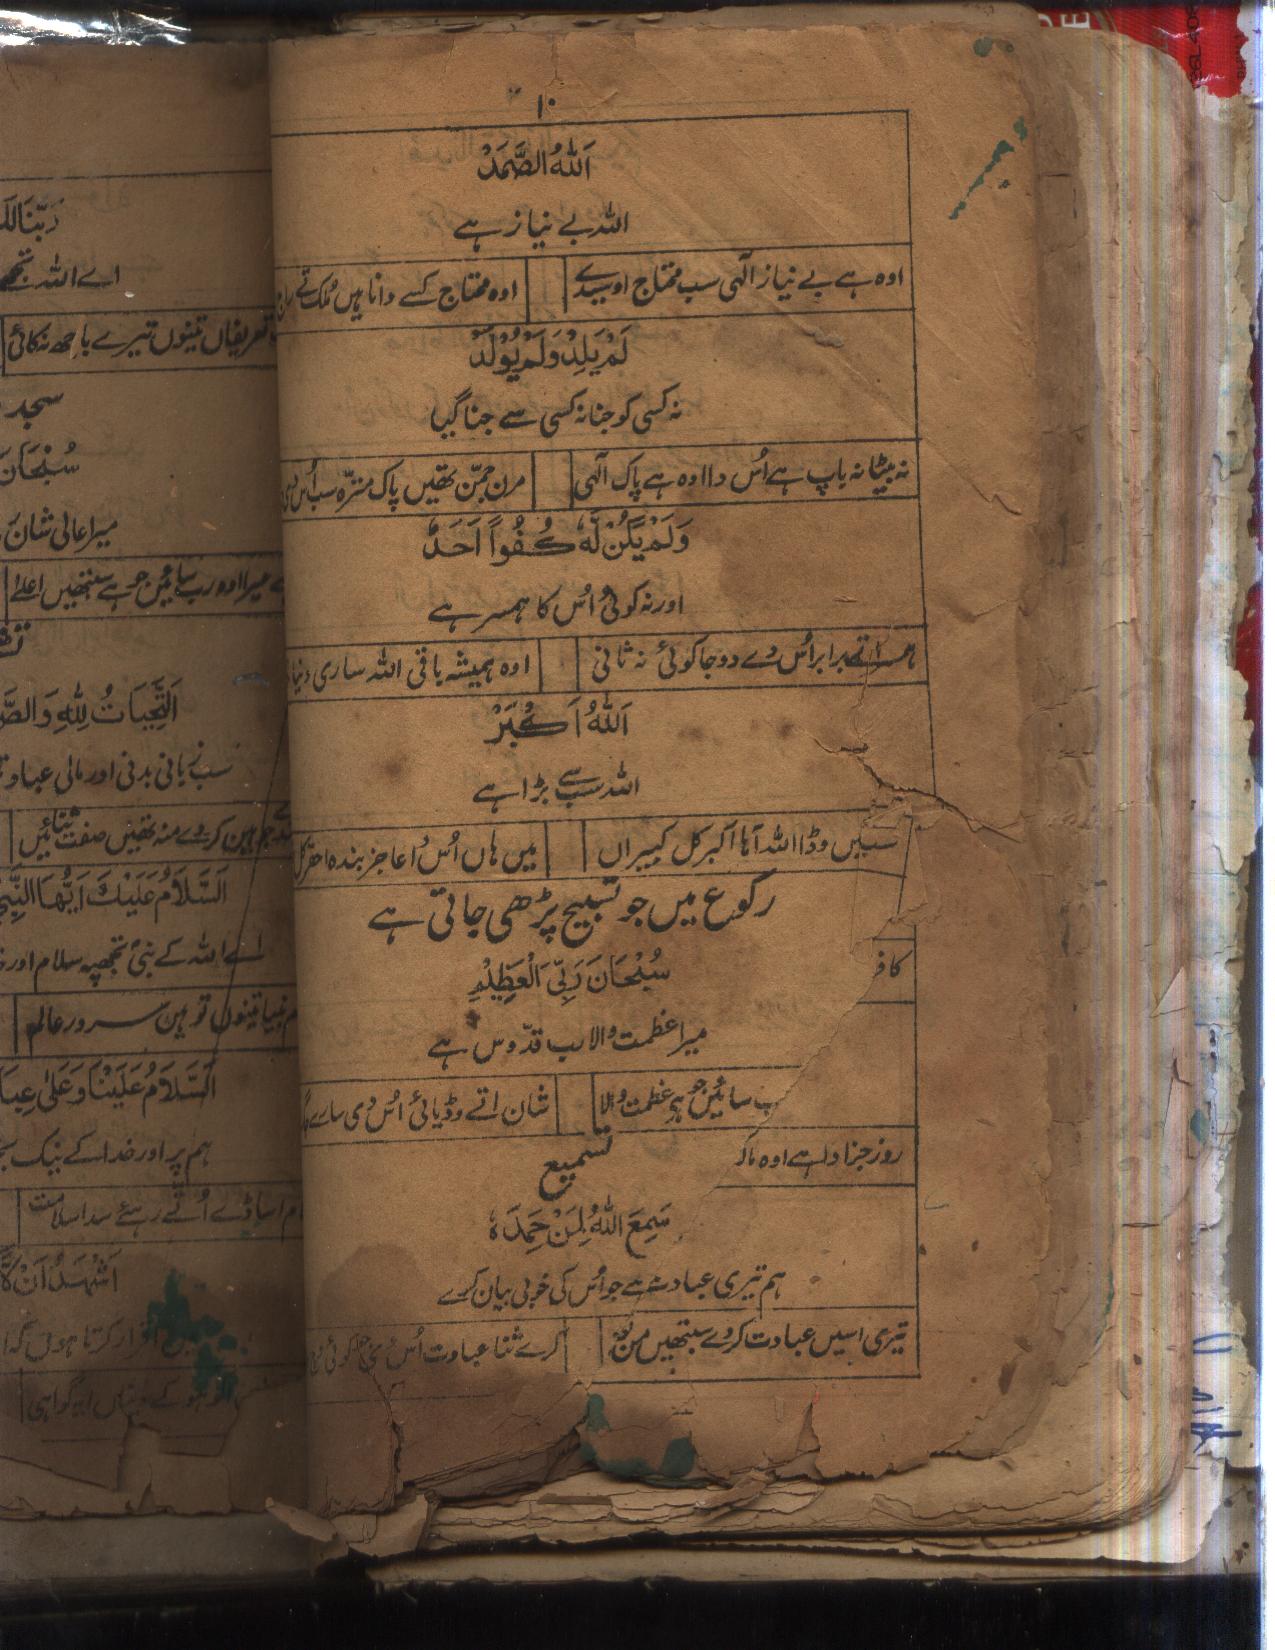 ۱۰
اَللّٰهُ الصَّمَدْ
اللہ بے نیاز ہے
اوہ ہے بے نیاز آلہی سب محتاج اوسیدے
اوہ محتاج کسے دا ناہیں مُلک تے راج
لَمْ يَلِدْ وَلَمْ يُوْلَدْ
نہ کسی کو جنا نہ کسی سے جنا گیا
نہ بیٹا نہ باپ ہے اُس دا اوہ ہے پاک آلہی
مرن جمّن تھیں پاک منزّہ سب اُس دی
وَلَمْ يَكُنْ لَّهٗ كُفُواً اَحَدٌ
اور نہ کوئی اُس کا ہمسر ہے
ہمسر اتے برابر اُس دے دوجا کوئی نہ ثانی
اوہ ہمیشہ باقی اللہ ساری دنیا
اَللّٰهُ اَكْبَرْ
اللہ سب سے بڑا ہے
سبہیں وڈا اللہ آہا اکبر کل کبیراں
میں ہاں اُس دا عاجز بندہ احقر کل
رکوع میں جو تسبیح پڑھی جاتی ہے
سُبْحَانَ رَبِّىَ الْعَظِيْمِ
کافر
میرا عظمت والا رب قدّوس ہے
سائیں جو ہے عظمت والا
شان اتے وڈیائی اُس دی سارے
تسمیع
روز جزا دا ہے اوہ
سَمِعَ اللّٰهُ لِمَنْ حَمِدَهٗ
ہم تیری عبادت ہے جو اُس کی خوبی بیان کرے
تیری اسیں عبادت کردے سبتھیں من
کرے ثنا عبادت اُس دی کوئی
رَبَّنَا لَكَ
اے اللہ تجھ
تعریفاں تینوں تیرے باجھ نہ کائی
سجدہ
سُبْحَانَ
میرا عالی شان
میرا اوہ رب سائیں جو ہے سبتھیں اعلےٰ
اَلتَّحِيَاتُ لِلّٰهِ وَالصَّ
سب زبانی بدنی اور مالی عبادتیں
ہین کردے منہ تھیں صفت ثنائیں
اَلسَّلَامُ عَلَيْكَ اَيُّهَا النَّبِىُّ
اے اللہ کے نبی تجھپہ سلام اور
نبیا تینوں توہین سرور عالم
اَلسَّلَامُ عَلَيْنَا وَعَلىٰ عِبَا
ہم پر اور خدا کے نیک
اساڈے اُتّے رہئے سدا سلامت
اَشْهَدُ اَنْ لَّا
اقرار کرتا ہوں
گواہی